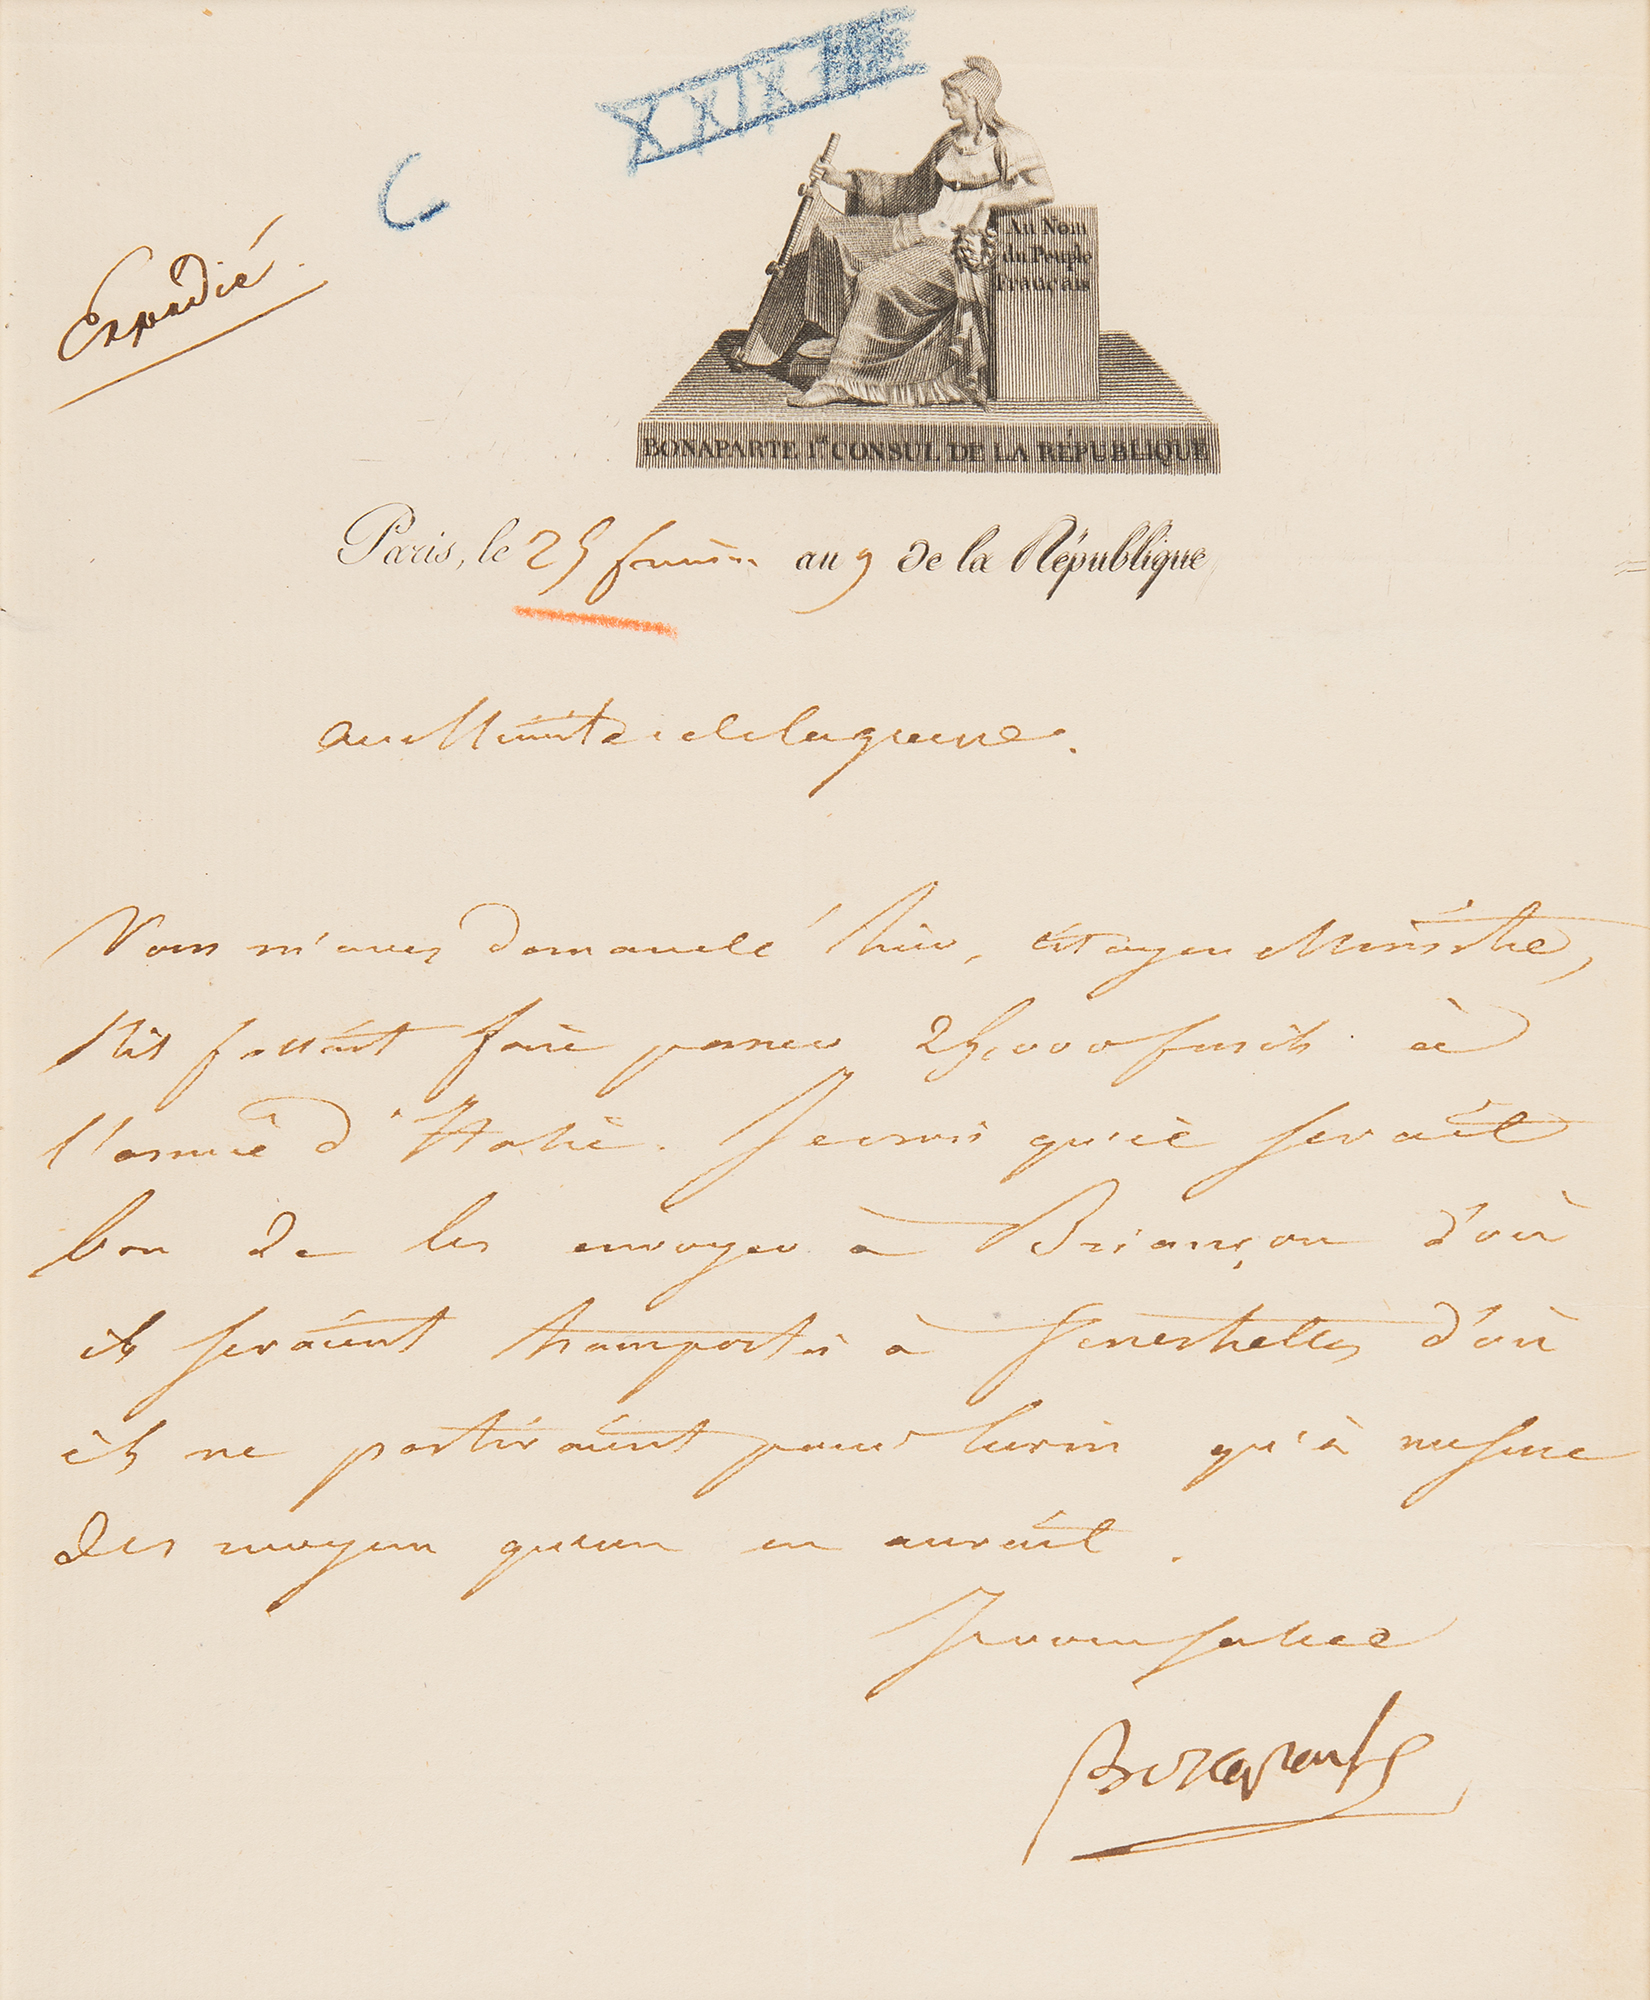 XXIX
C
Expédié.
Au Nom
du Peuple
Français
BONAPARTE 1er CONSUL DE LA RÉPUBLIQUE
Paris, le 25 frimaire an 9 de la République
Au Ministre de la guerre.
Vous m'avez demandé hier, citoyen Ministre,
s'il fallait faire passer 25,000 fusils à
l'armée d'Italie. Je crois qu'il serait
bon de les envoyer à Briançon d'où
ils seraient transportés à Fenestrelles d'où
ils ne partiraient pour turin qu'à mesure
des moyens qu'on en aurait.
Je vous salue
Bonaparte